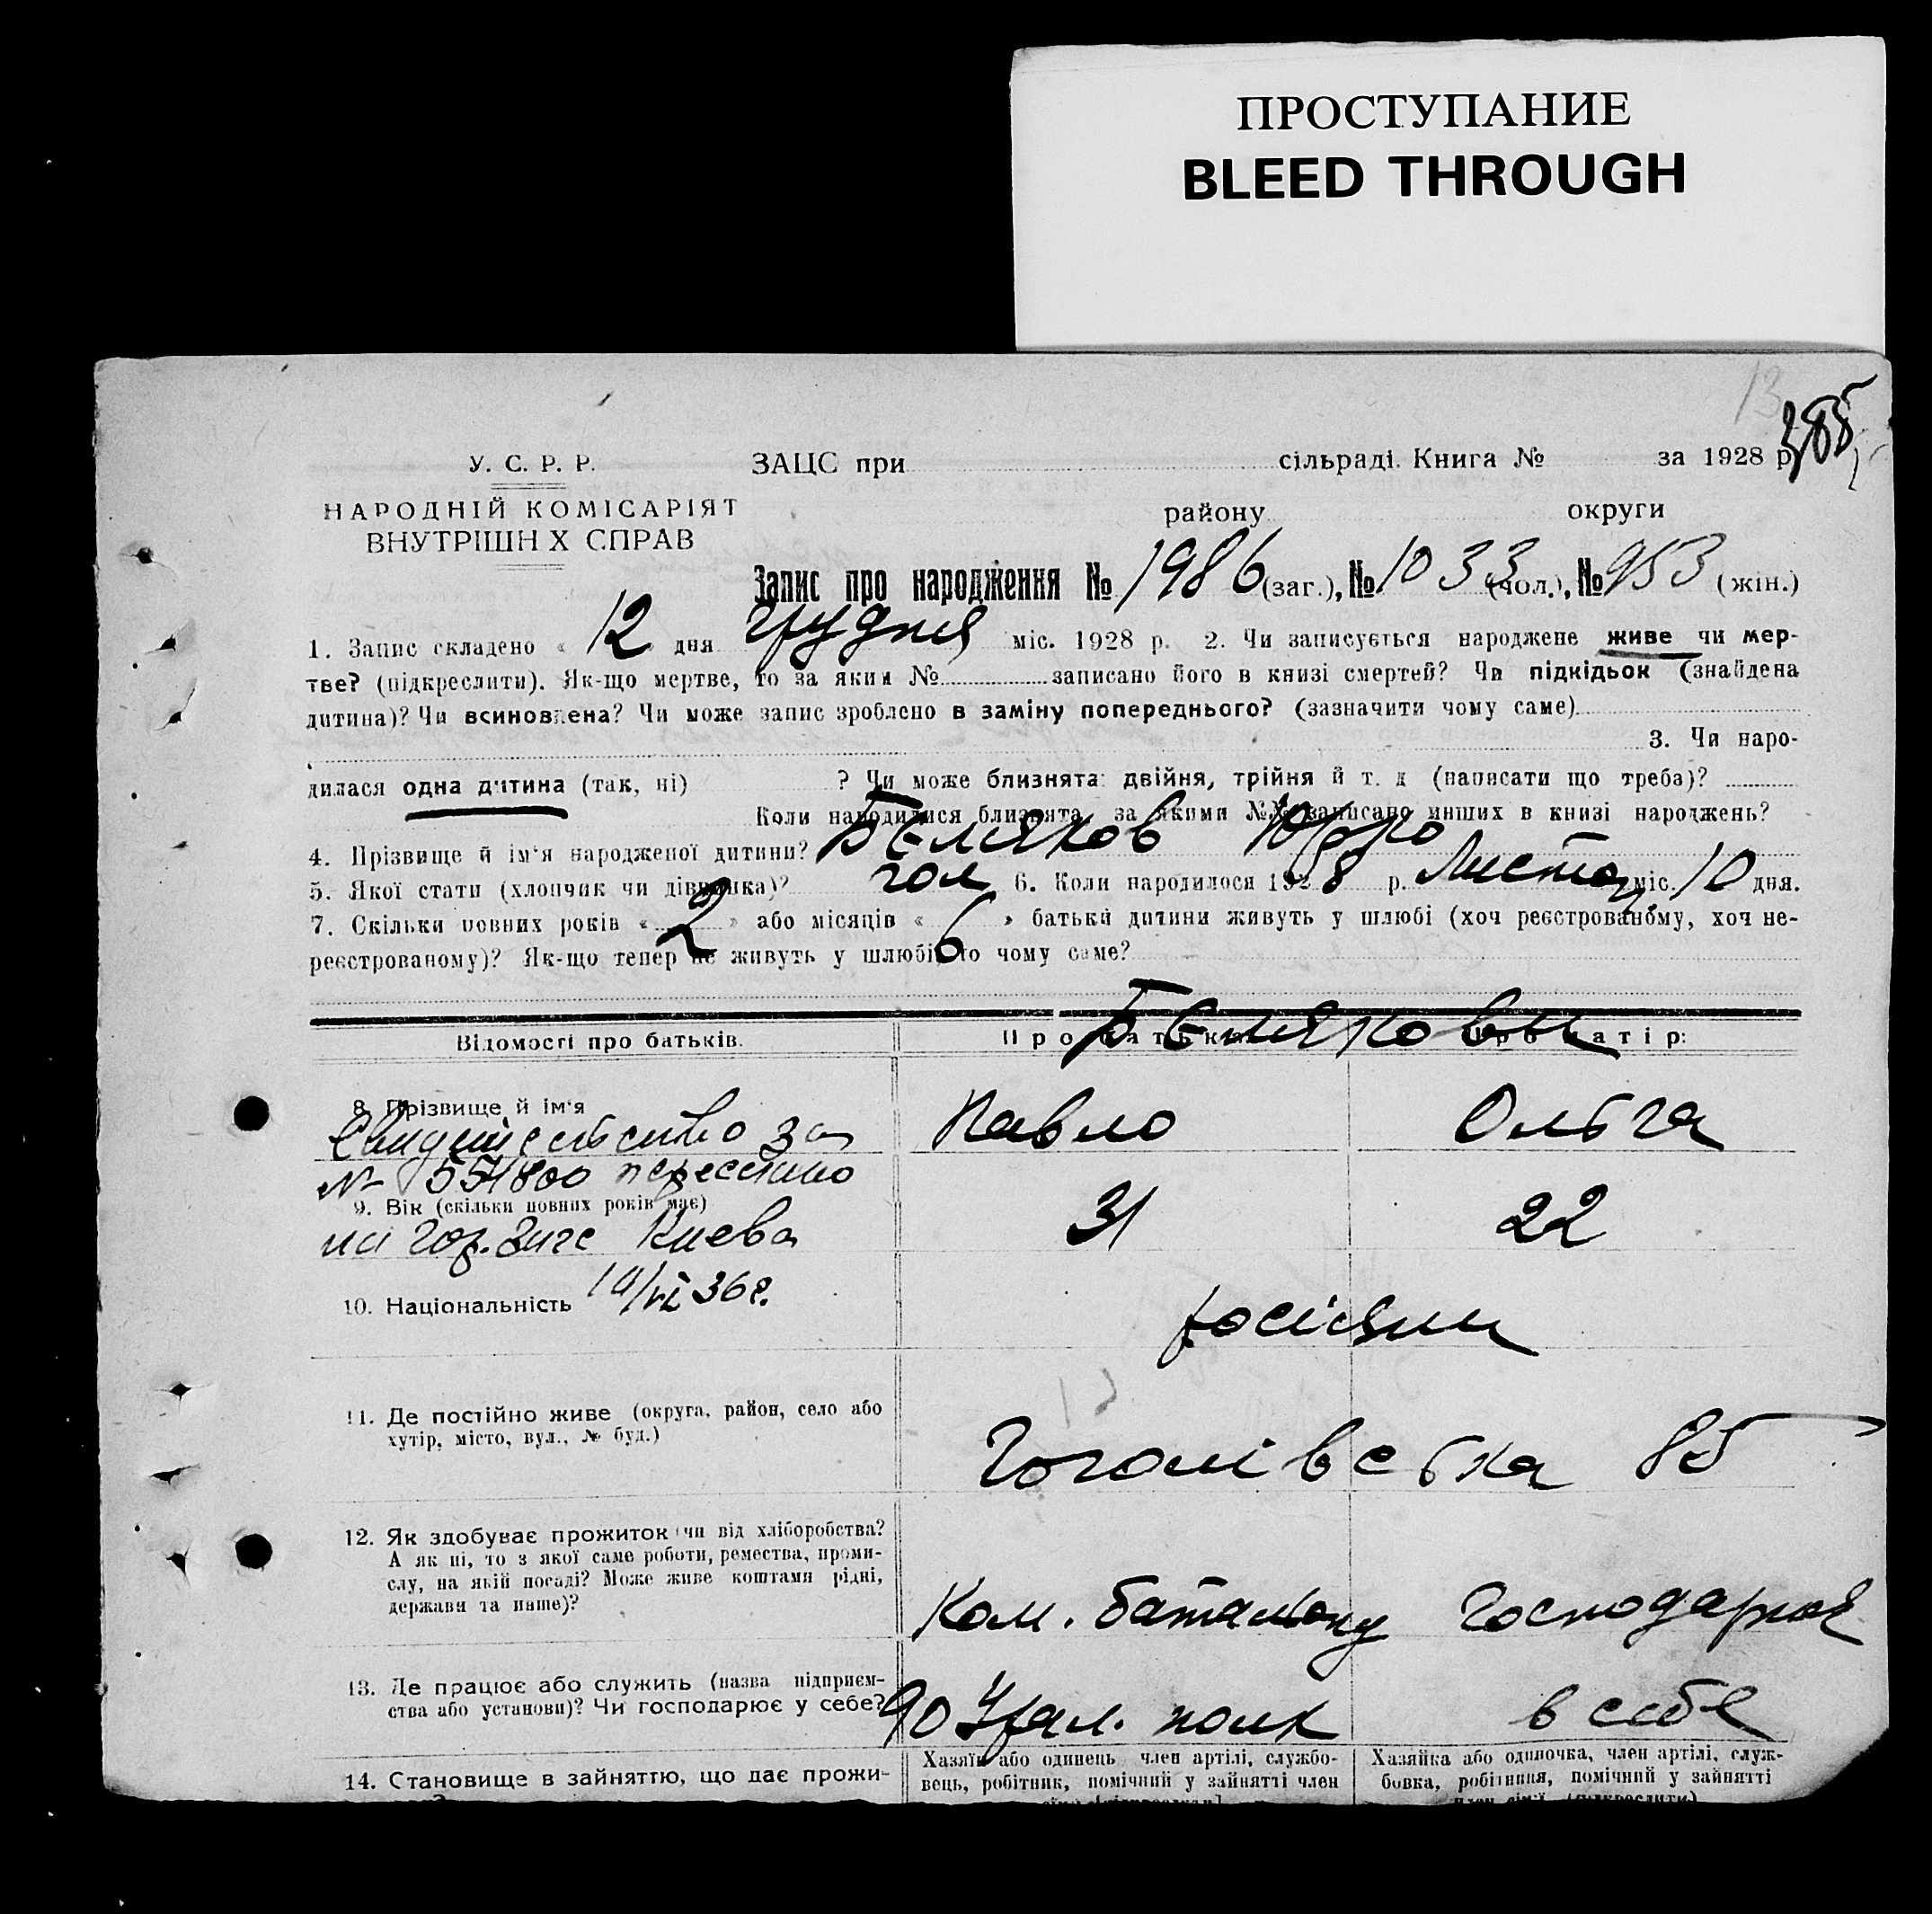 ПРОСТУПАНИЕ
BLEED THROUGH
13
385
У. С. Р. Р. ЗАЦС при сільраді. Книга № за 1928 р.
НАРОДНІЙ КОМІСАРІЯТ району округи
ВНУТРІШН Х СПРАВ
Запис про народження № 1986 (заг.), № 1033 (чол.), № 953 (жін.)
1. Запис складено « 12 » дня грудня міс. 1928 р. 2. Чи записується народжене живе чи мер-
тве? (підкреслити). Як-що мертве, то за яким № записано його в книзі смертей? Чи підкідьок (знайдена
дитина)? Чи всиновлена? Чи може запис зроблено в заміну попереднього? (зазначити чому саме)
3. Чи наро-
дилася одна дитина (так, ні) ? Чи може близнята: двійня, трійня й т. д. (написати що треба)?
Коли народилися близнята, за якими №№ записано инших в книзі народжень?
4. Прізвище й ім'я народженої дитини? Бєляков Юрко
5. Якої стати (хлопчик чи дівчинка)? чол 6. Коли народилося 1928 р. Листоп. міс. 10 дня.
7. Скільки повних років « 2 » або місяців « 6 » батьки дитини живуть у шлюбі (хоч реєстрованому, хоч не-
реєстрованому)? Як-що тепер не живуть у шлюбі, то чому саме?
Бєлякови
Відомості про батьків. Про батька: Про матір:
8. Прізвище й ім'я Павло Ольга
Свидетельство за
№ 551800 переслано
9. Вік (скільки повних років має) 31 22
на Гор. Загс Киева
10. Національність 14/VI 36 г. росіяни
11. Де постійно живе (округа, район, село або
хутір, місто, вул., № буд.) Гоголівська 85
12. Як здобуває прожиток чи від хліборобства?
А як ні, то з якої саме роботи, ремества, проми-
слу, на якій посаді? Може живе коштами рідні,
держави та инше)? Ком. баталіону Господарює
13. Де працює або служить (назва підприєм-
ства або установи)? Чи господарює у себе? 90 Урал. полк в себе
14. Становище в зайняттю, що дає прожи-
Хазяїн або одинець член артілі, службо-
вець, робітник, помічний у зайнятті член
Хазяйка або одиночка, член артілі, служ-
бовка, робітниця, помічний у зайнятті
член сім'ї (підкреслити)